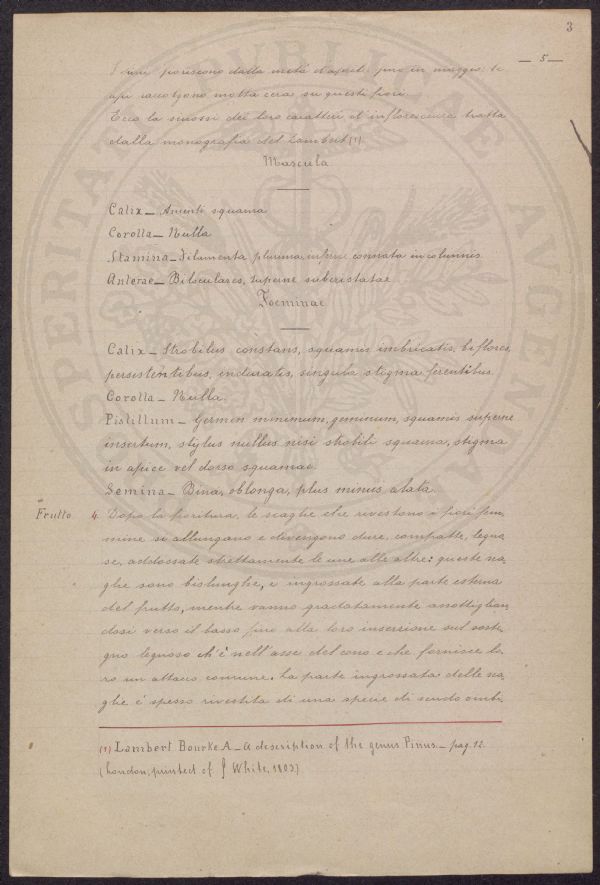 3
— 5 —
I pini fioriscono dalla metà d'aprile fino in maggio; le
api raccolgono molta cera su questi fiori.
Ecco la sinossi dei loro caratteri d'inflorescenza tratta
dalla monografia del Lambert (1)
Mascula
Calix — Amenti squama
Corolla — Nulla
Stamina — Filamenta plurima, inferne connata in columnis
Anterae — Biloculares, superne subcristatae
Foeminae
Calix — Strobilus constans, squamis imbricatis, bifloris,
persistentibus, induratis, singula stigma ferentibus.
Corolla — Nulla.
Pistillum — Germen minimum, geminum, squamis superne
insertum, stylus nullus nisi strobili squama, stigma
in apice vel dorso squamae.
Semina — Bina, oblonga, plus minus alata.
Frutto 4. Dopo la fioritura, le scaglie che rivestono i fiori fem,
minei si allungano e divengono dure, compatte, legno
se, addossate strettamente le une alle altre: queste sca,
glie sono bislunghe, e ingrossate alla parte esterna
del frutto, mentre vanno gradatamente assottiglian,
dosi verso il basso fino alla loro inserzione sul soste,
gno legnoso ch'è nell'asse del cono e che fornisce lo,
ro un attacco comune. La parte ingrossata delle sca,
glie è spesso rivestita di una specie di scudo ombi,
(1) Lambert Bourke A — A description of the genus Pinus — pag. 12.
(London, printed of J White, 1803)